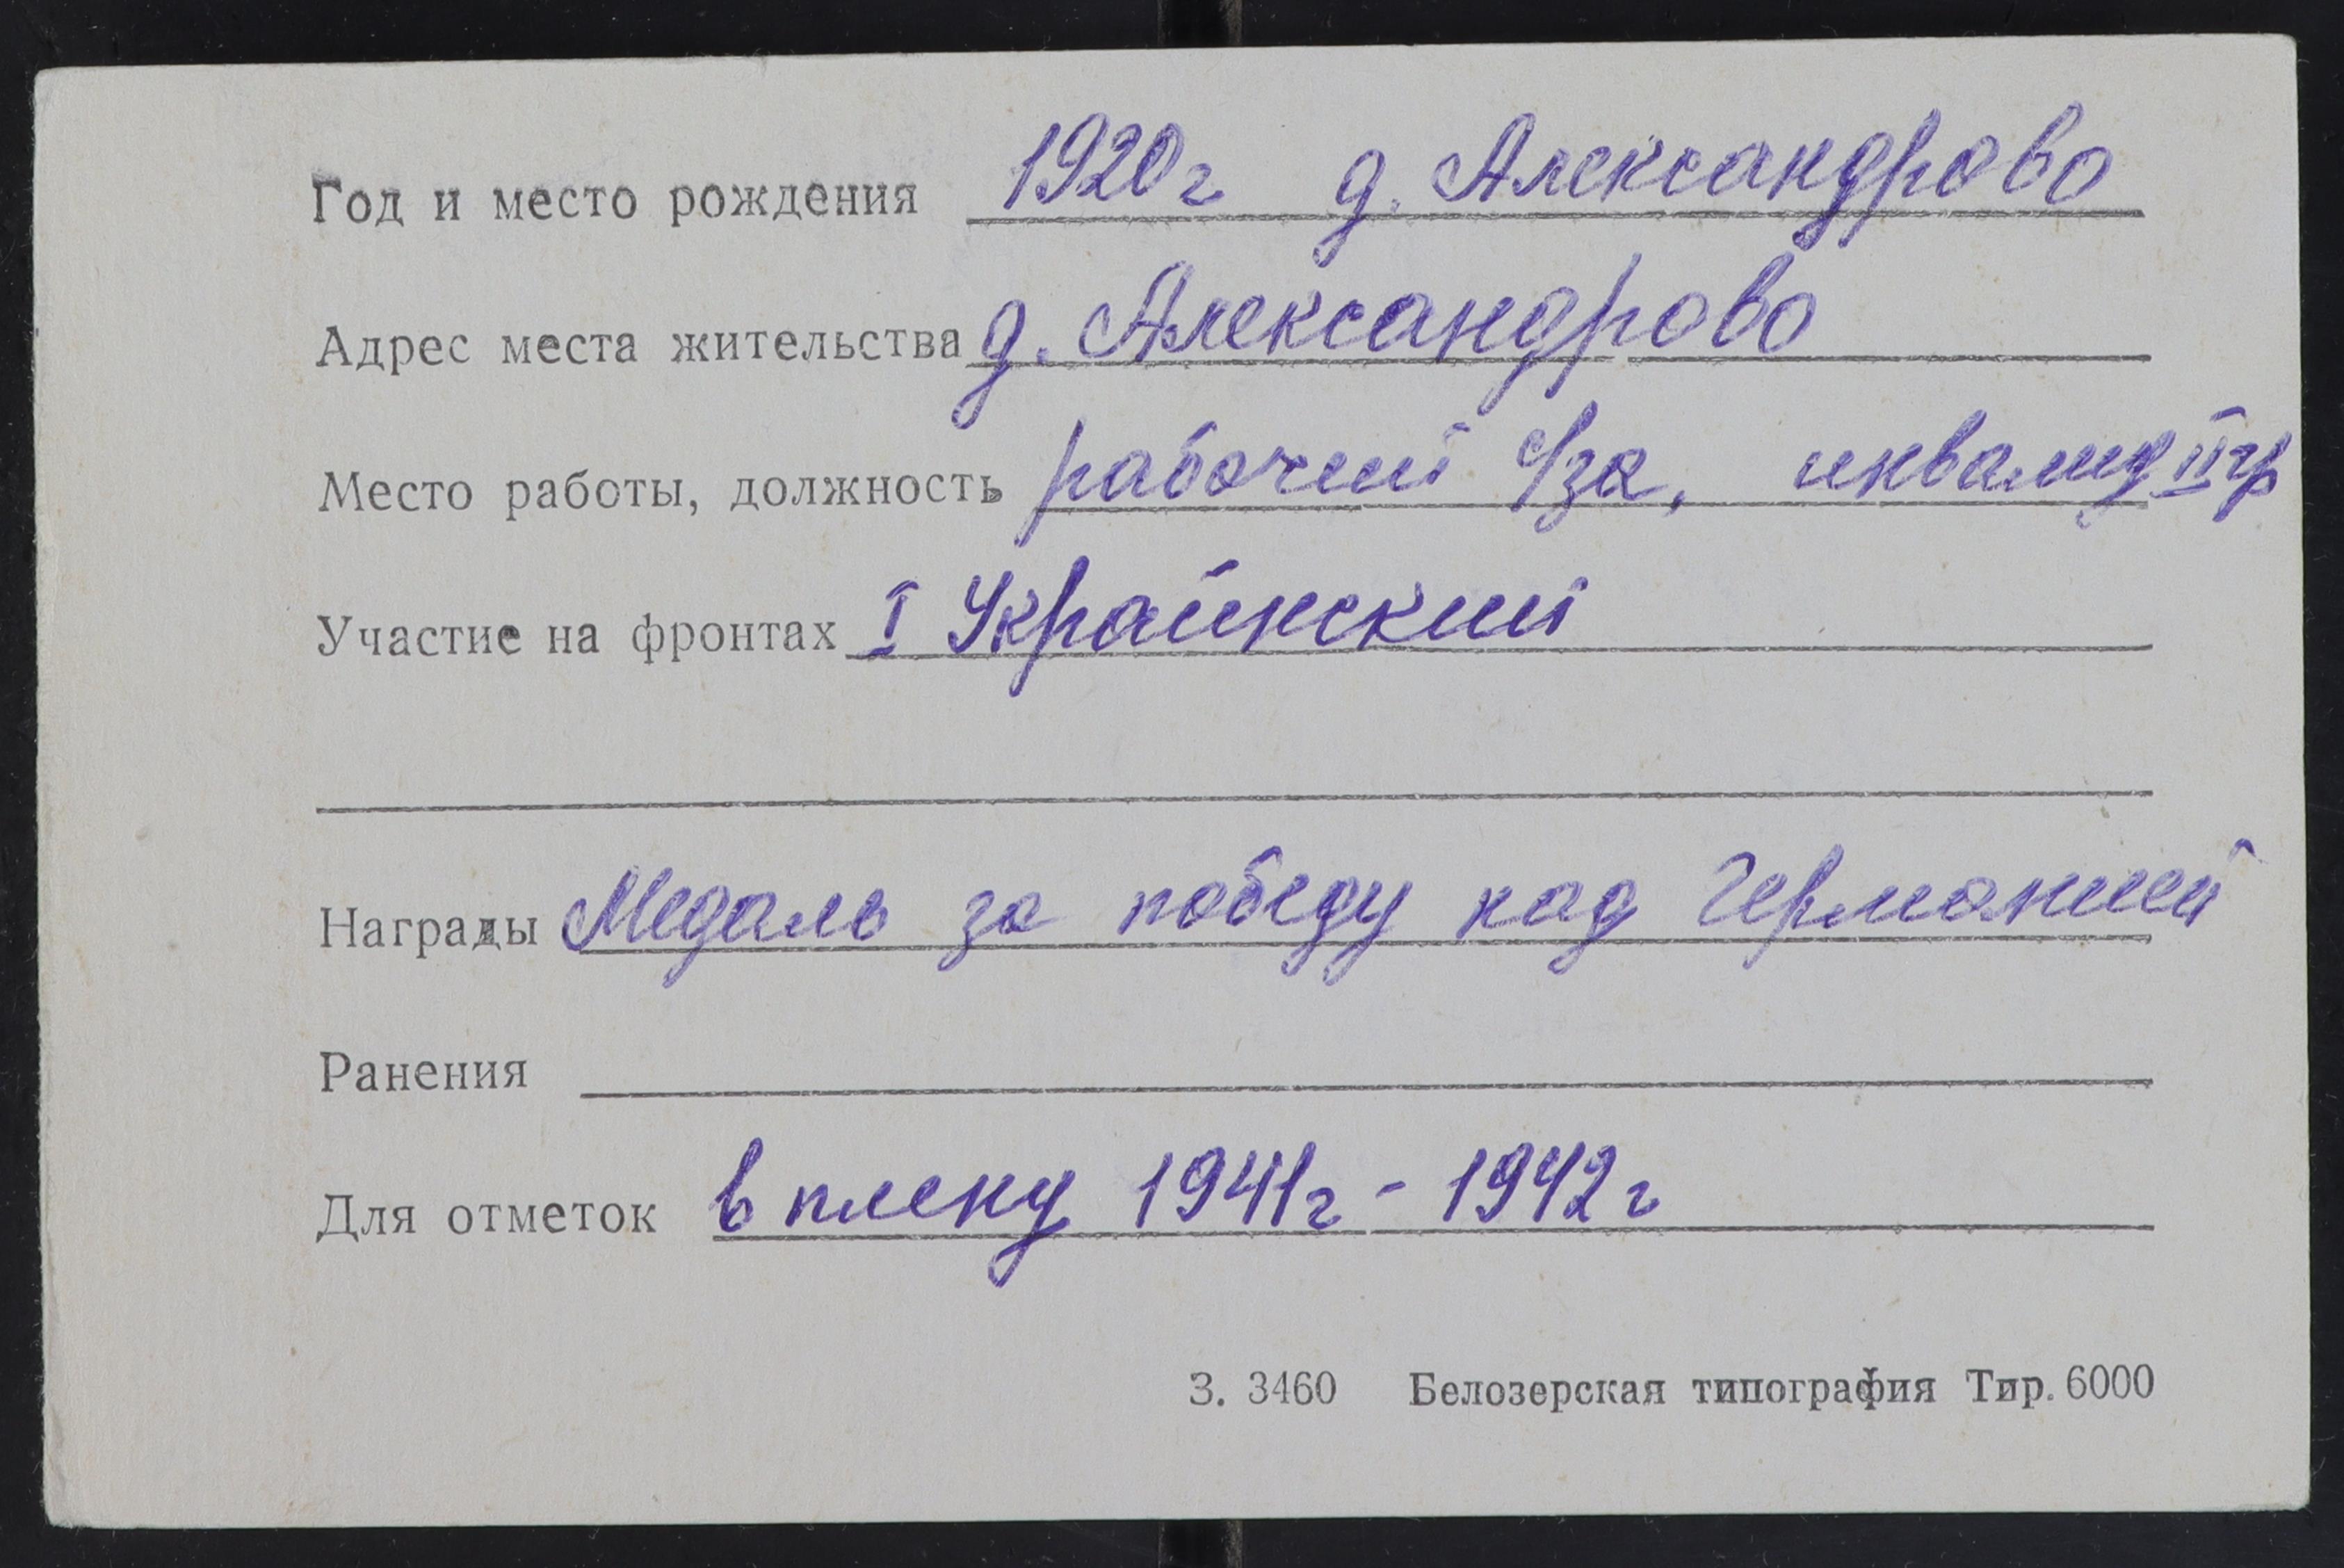 Год и место рождения 1920г д. Александрово
Адрес места жительства д. Александрово
Место работы, должность рабочий с/за, инвалид II гр
Участие на фронтах I Украинский
Награды Медаль за победу над Германией
Ранения
Для отметок в плену 1941г - 1942г
З. 3460 Белозерская типография Тир. 6000